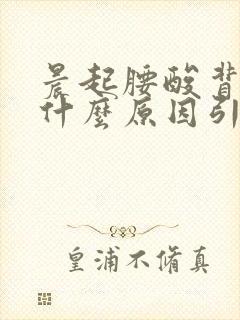 晨起腰酸背
什麼原因引
皇浦不脩真